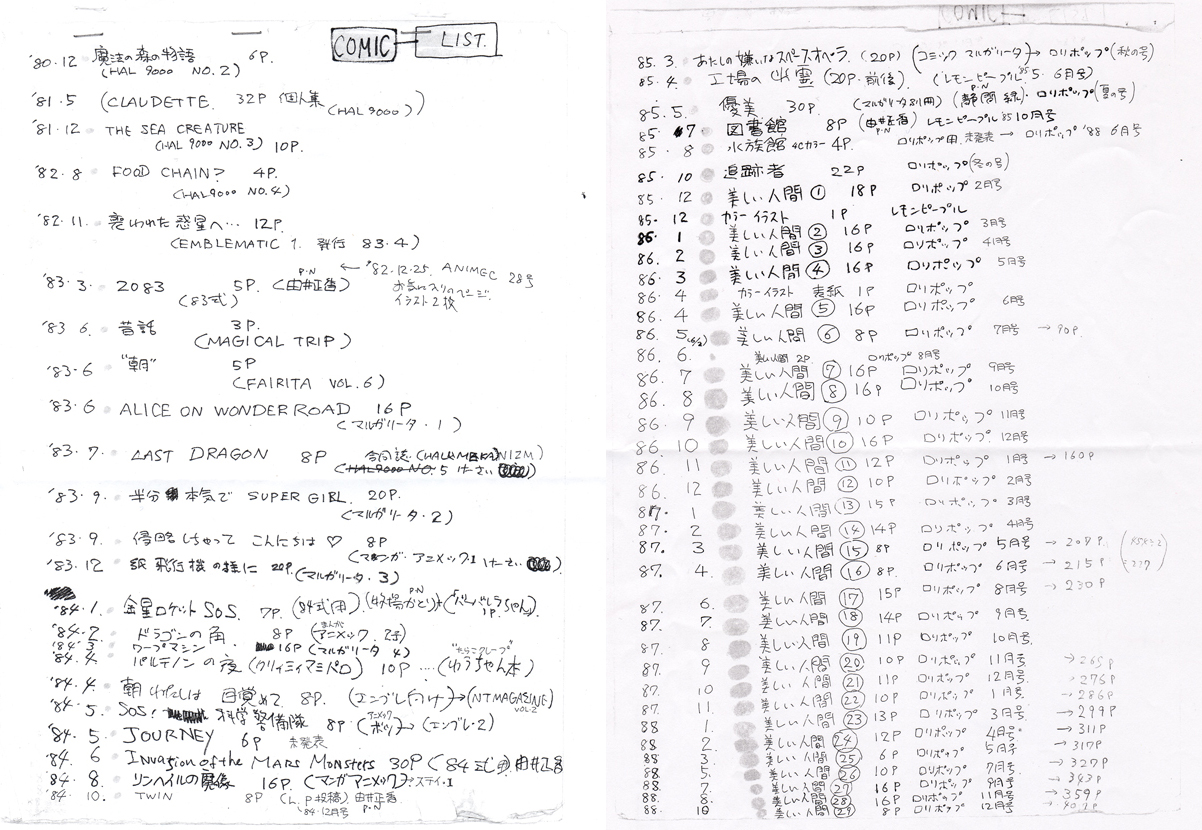 COMIC LIST.
'80.12 魔法の森の物語 6P.
(HAL 9000 NO.2)
'81.5 (CLAUDETTE. 32P 個人集
(HAL9000))
'81.12 THE SEA CREATURE
(HAL 9000 NO.3) 10P.
'82.8 FOOD CHAIN? 4P.
(HAL9000 NO.4)
'82.11. 襲われた惑星へ… 12P.
(EMBLEMATIC 1. 発行 83.4)
← '82.12.25. ANIMEC 28号
お気に入りのページ.
イラスト2枚
'83.3. 2083 5P. (由井正香) P.N
(83式)
'83 6. 昔話 3P.
(MAGICAL TRIP)
'83.6 "朝" 5P
(FAIRITA VOL.6)
'83.6 ALICE ON WONDER ROAD 16P
(マルガリータ.1)
'83.7. LAST DRAGON 8P
'83.9. 半分本気で SUPER GIRL. 20P.
(マルガリータ.2)
'83.9. 侵略しちゃって こんにちは♡ 8P
'83.12 紙飛行機の様に 20P.
(マルガリータ.3)
'84.1. 金星ロケットSOS. 7P. (84式用)
1P.
'84.2. ドラゴンの角 8P (まんがアニメック. 2号
'84.3 ワープマシン 16P (マルガリータ 4)
'84.4 パルテノンの夜 (クリィミィマミパロ) 10P ....(ゆうちゃん本)
'84.4 朝 目覚めて. 8P. →(NTMAGAZINE) VOL.2
'84.5. SOS! 科学警備隊 8P →(エンブレ.2)
'84.5 JOURNEY 6P 未発表
'84.6 Invasion of the Mars Monsters 30P 由井正香
'84.8 リンヘイルの魔像 16P. (マンガアニメック)
'84.10. TWIN 8P (L.P投稿) 由井正香 P.N
84.12月号
COMIC
85.3. あたしの嫌いなスペースオペラ. (20P) (コミック マルガリータ)→ロリポップ(秋の号)
85.4. 工場の幽霊 (20P.前後). (レモンピープル'85 5.6月号)
85.5. 優美 30P. (マルガリータ別冊) ロリポップ(夏の号)
85.7 図書館 8P (由井正香) P.N レモンピープル'85 10月号
85.8 水族館 4Cカラー 4P. ロリポップ用.未発表 → ロリポップ'88 6月号
85.10 追跡者 22P ロリポップ(冬の号)
85.12 美しい人間① 18P ロリポップ 2月号
85.12 カラーイラスト 1P レモンピープル
86.1 美しい人間② 16P ロリポップ 3月号
86.2 美しい人間③ 16P ロリポップ 4月号
86.3 美しい人間④ 16P ロリポップ 5月号
86.4 カラーイラスト 表紙 1P ロリポップ
86.4 美しい人間⑤ 16P ロリポップ 6月号
86.5 美しい人間⑥ 8P ロリポップ 7月号 → 90P.
86.6. 美しい人間 2P. ロリポップ 8月号
86.7 美しい人間⑦ 16P ロリポップ 9月号
86.8 美しい人間⑧ 16P ロリポップ 10月号
86.9 美しい人間⑨ 10P ロリポップ 11月号
86.10 美しい人間⑩ 16P ロリポップ 12月号
86.11 美しい人間⑪ 12P ロリポップ 1月号 → 160P
86.12 美しい人間⑫ 10P ロリポップ 2月号
87.1 美しい人間⑬ 15P ロリポップ 3月号
87.2 美しい人間⑭ 14P ロリポップ 4月号
87.3 美しい人間⑮ 8P ロリポップ 5月号 → 207P
87.4. 美しい人間⑯ 8P. ロリポップ 6月号 → 215P
87.6. 美しい人間⑰ 15P ロリポップ 8月号 → 230P
87.7. 美しい人間⑱ 14P ロリポップ 9月号
87.8 美しい人間⑲ 11P ロリポップ 10月号.
87.9 美しい人間⑳ 10P ロリポップ 11月号 → 265P
87.10 美しい人間㉑ 11P ロリポップ 12月号. → 276P
87.11. 美しい人間㉒ 10P ロリポップ 1月号 → 286P
88 1. 美しい人間㉓ 13P ロリポップ 3月号. → 299P
88 2. 美しい人間㉔ 12P ロリポップ 4月号 → 311P
88 3. 美しい人間㉕ 6P ロリポップ 5月号 → 317P
88.5. 美しい人間㉖ 10P ロリポップ 7月号 → 327P
88.7. 美しい人間㉗ 16P ロリポップ 9月号 → 343P
88.8. 美しい人間㉘ 16P ロリポップ 11月号 → 359P
88.10 美しい人間㉙ 8P ロリポップ 12月号